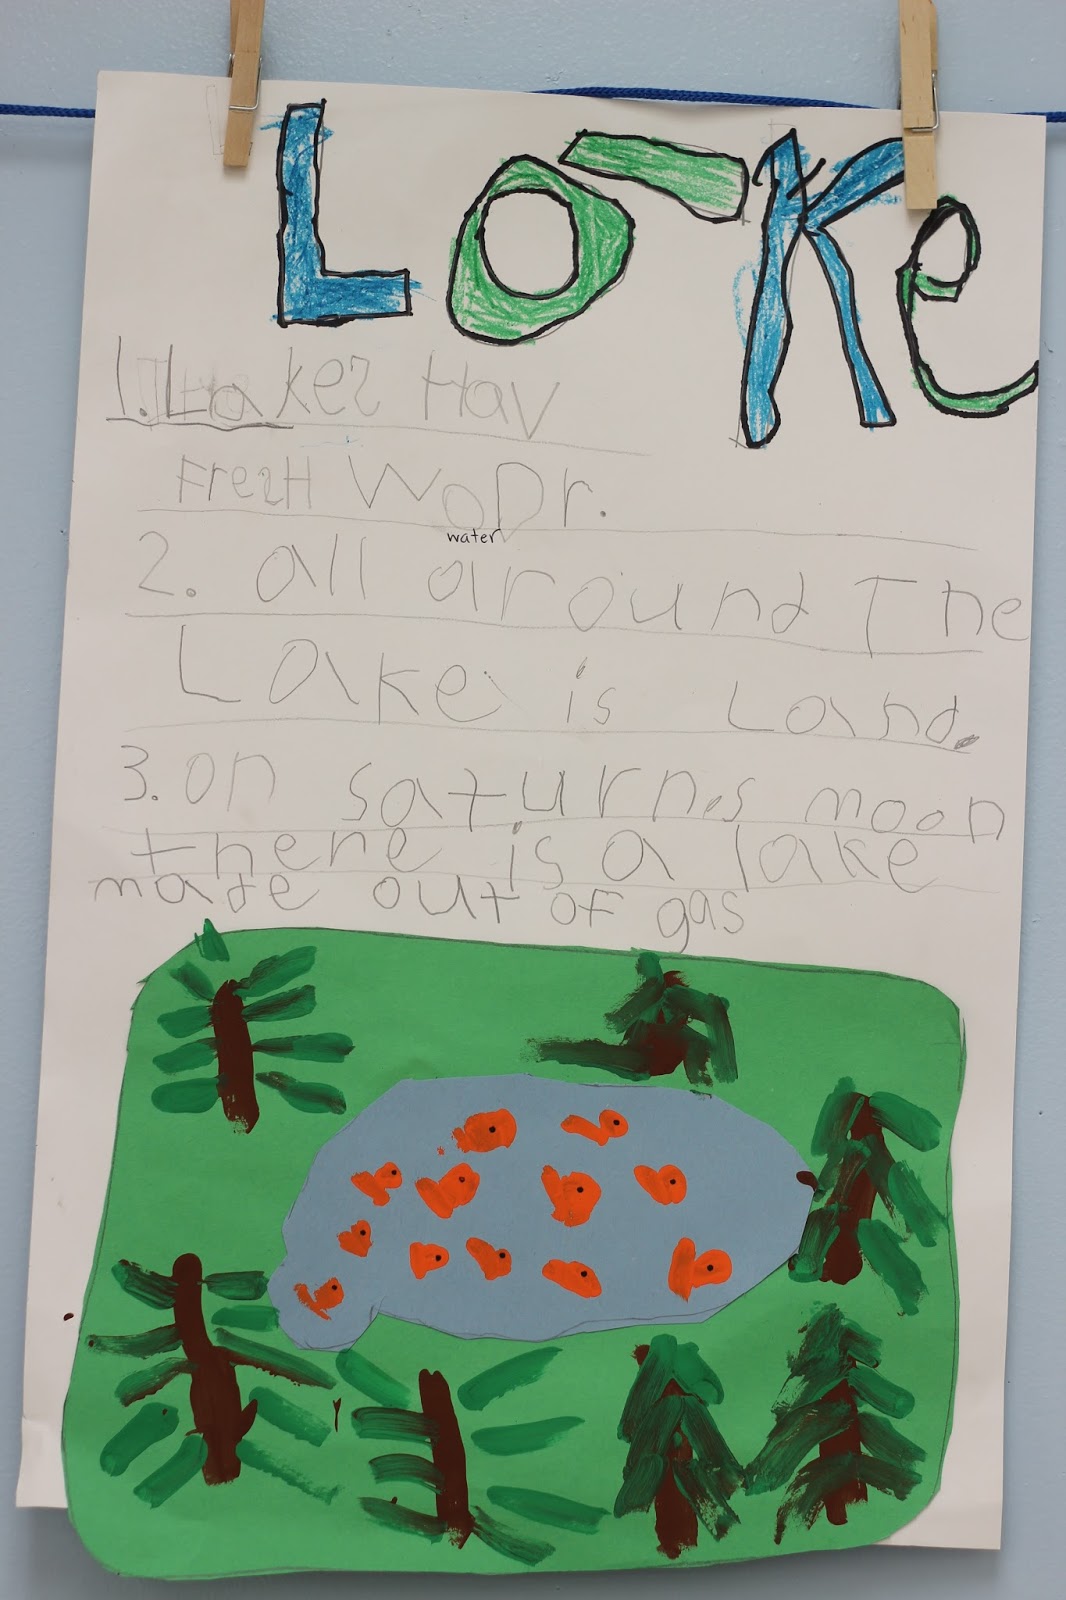 LaKe
1. Lakes Hav
FresH WoDr.
water
2. all around The
Lake is Land.
3. on saturn,s moon
there is a lake
made out of gas